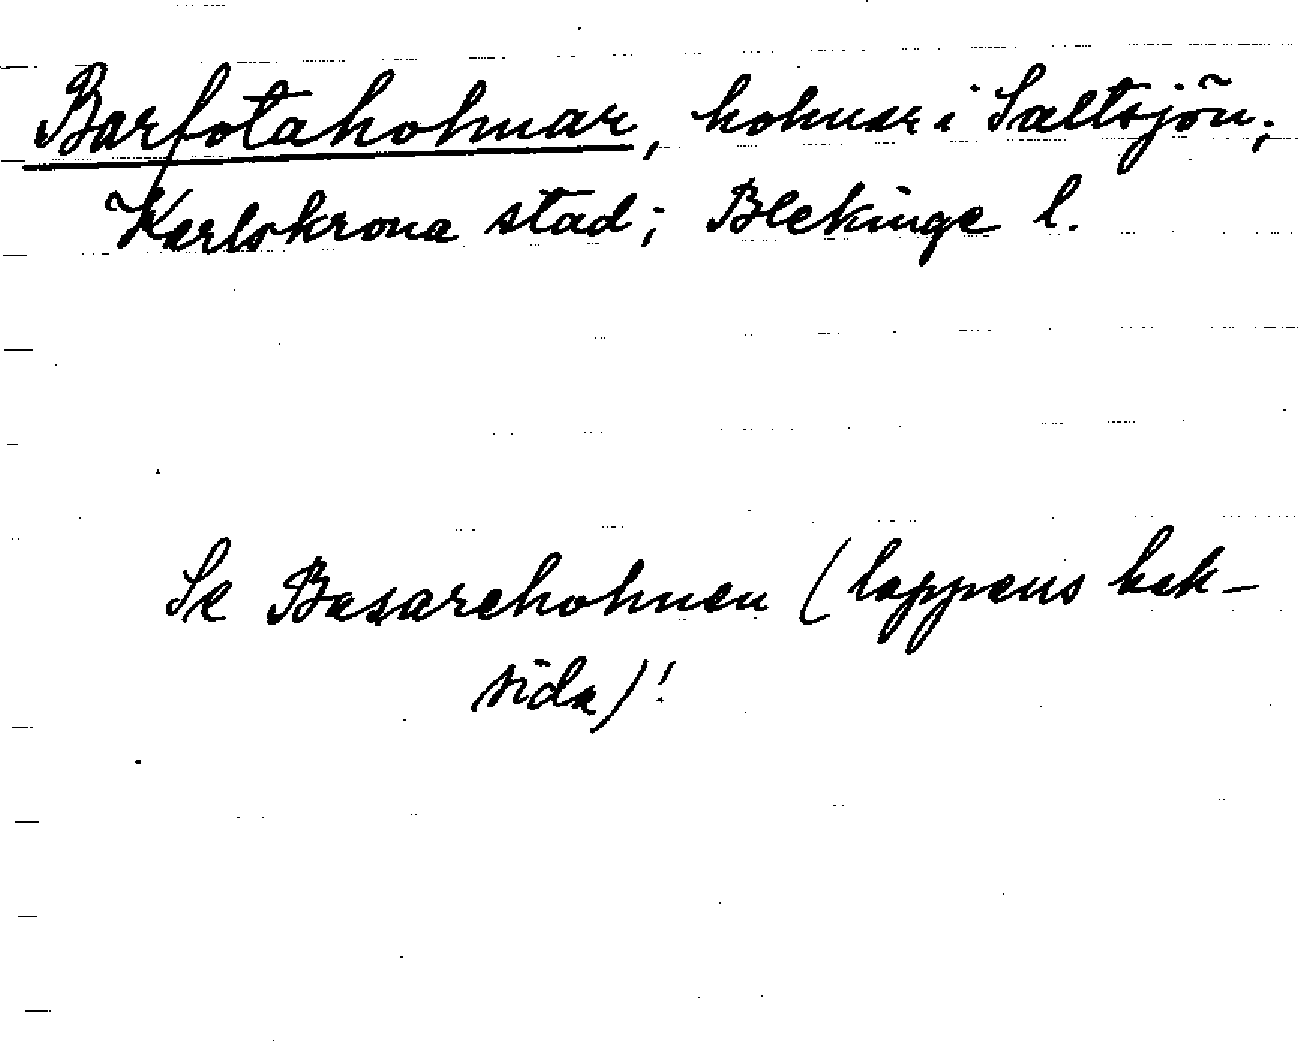 Barfotaholmar, holmar i Saltsjön;
Karlskrona stad; Blekinge l.
Se Basareholmen (lappens bak-
sida)!